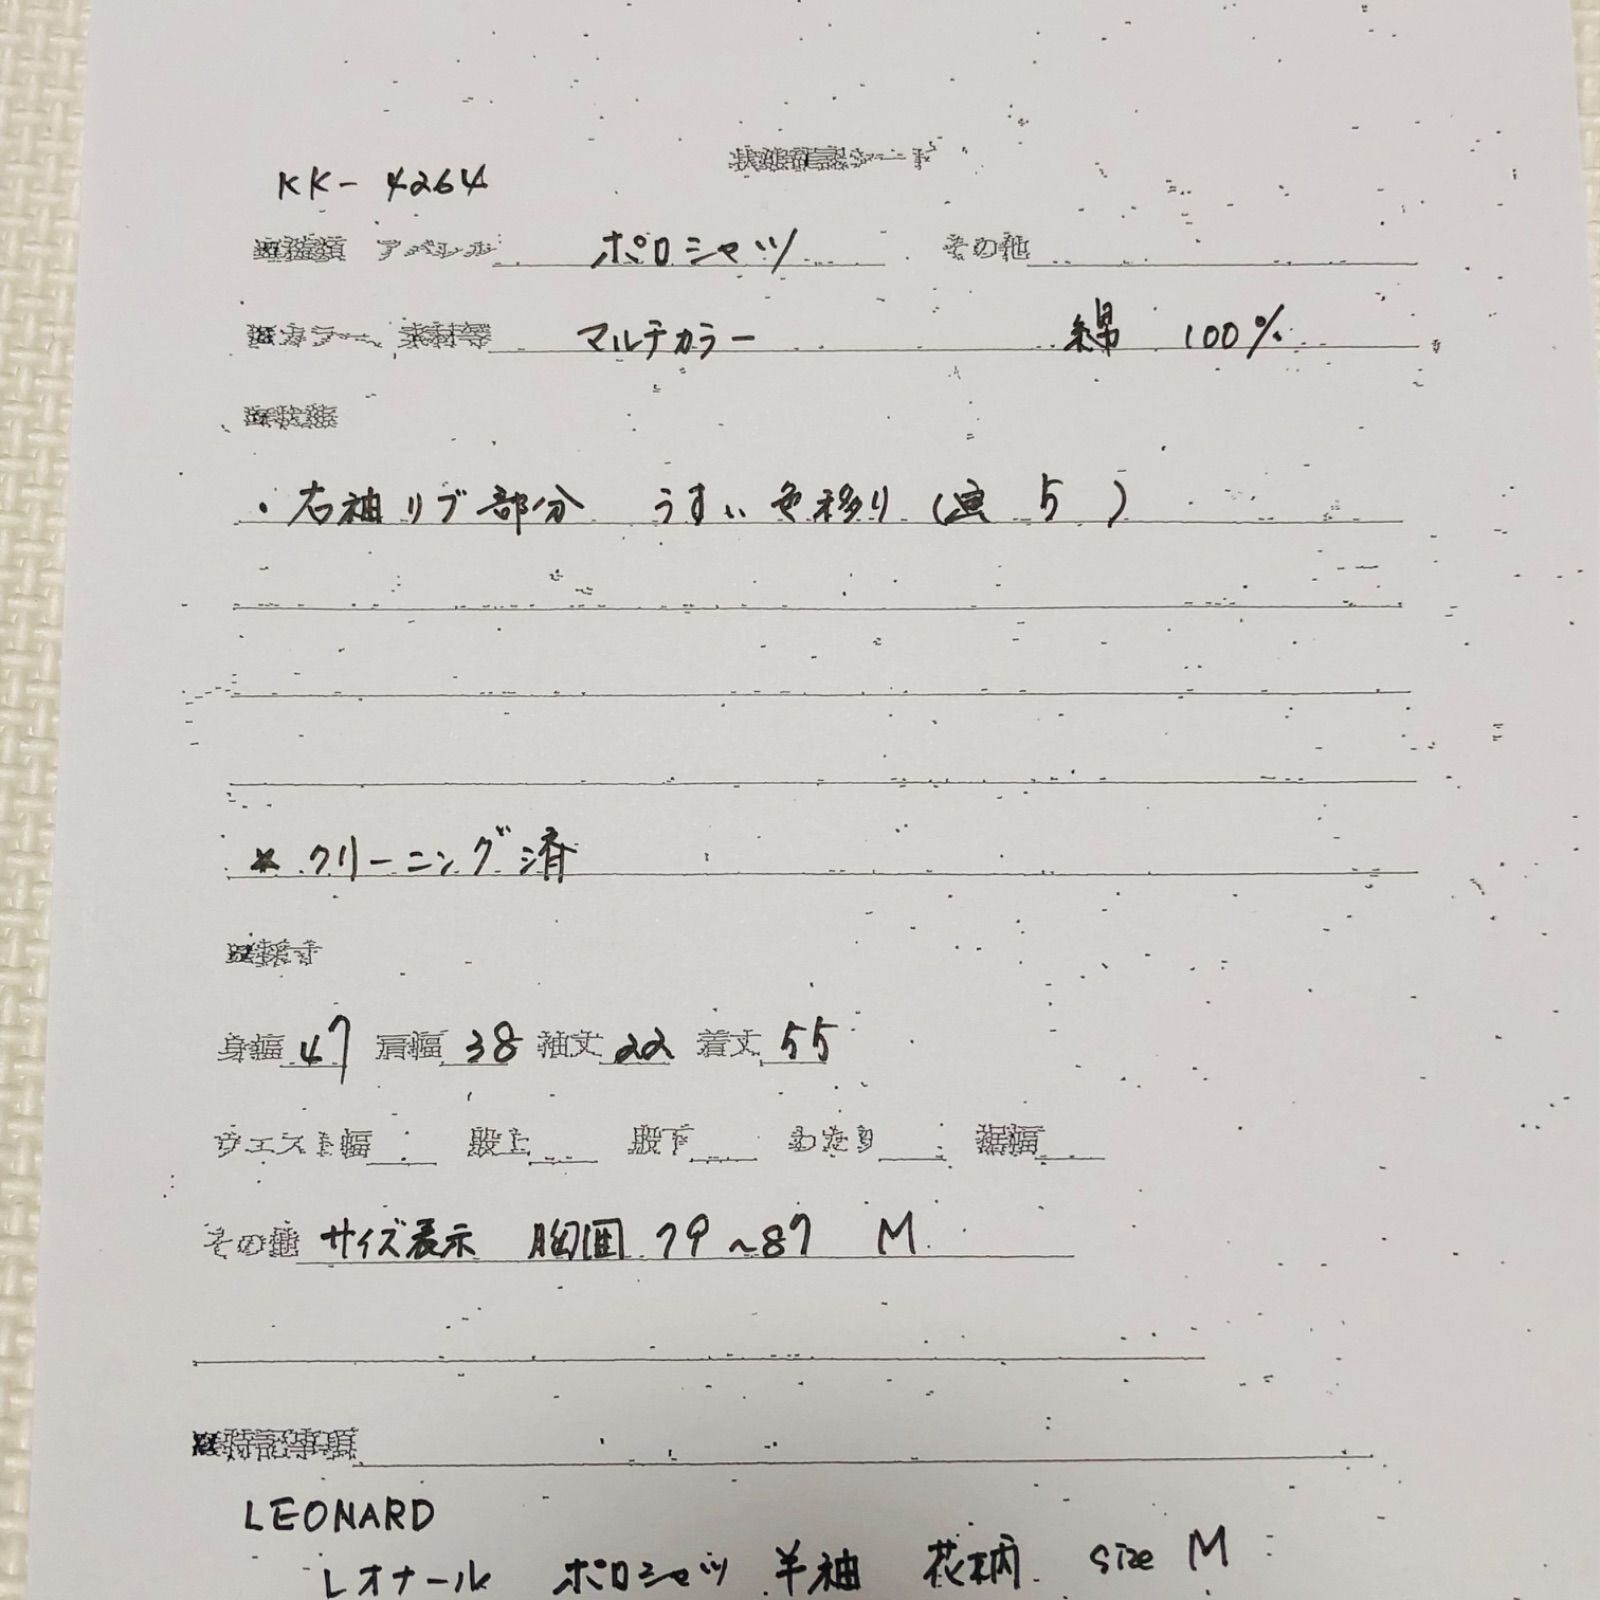 状態確認シート
KK-4264
種類 アパレル ポロシャツ その他
カラー、素材等 マルチカラー 綿 100%
状態
・右袖リブ部分 うすい色移り(画 5 )
* クリーニング済
採寸
身幅 47 肩幅 38 袖丈 22 着丈 55
ウエスト幅 股上 股下 わたり 裾幅
その他 サイズ表示 胸囲 79~87 M
特記事項
LEONARD
レオナール ポロシャツ 半袖 花柄 size M